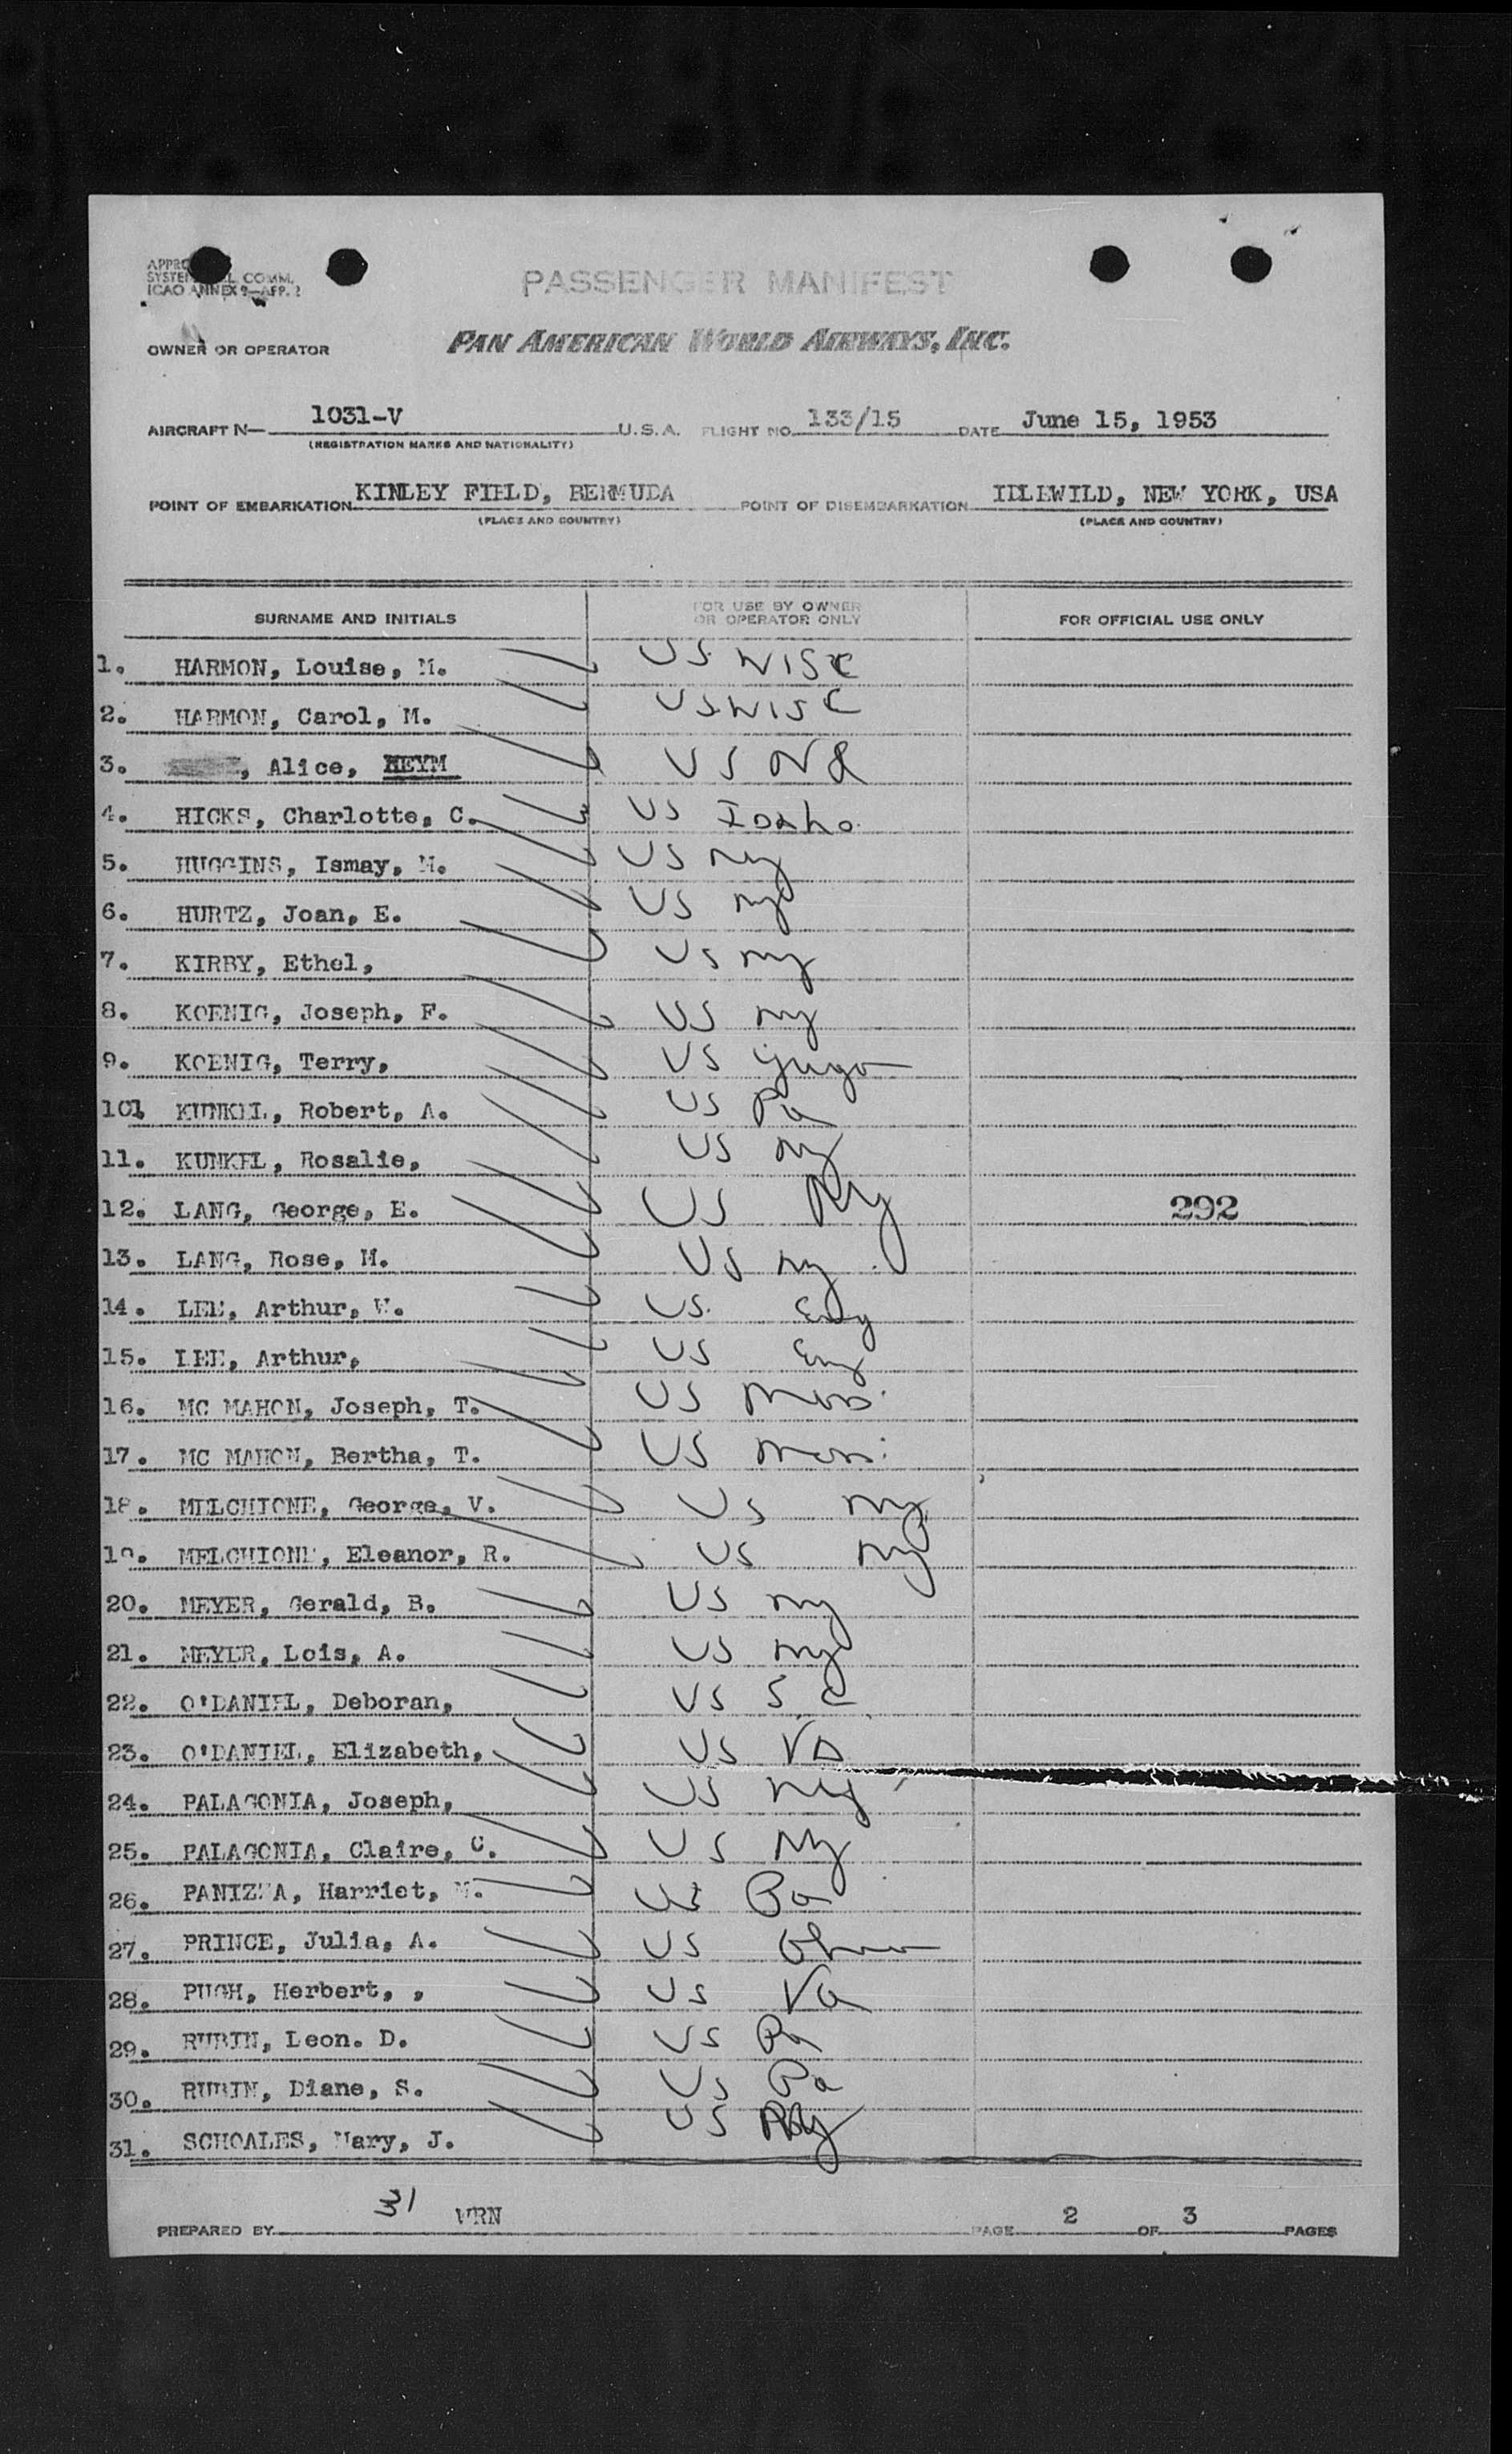 PASSENGER MANIFEST
ICAO ANNEX 9—APP. 2
OWNER OR OPERATOR PAN AMERICAN WORLD AIRWAYS, INC.
AIRCRAFT N— 1031-V U.S.A. FLIGHT NO. 133/15 DATE June 15, 1953
(REGISTRATION MARKS AND NATIONALITY)
POINT OF EMBARKATION KINLEY FIELD, BERMUDA POINT OF DISEMBARKATION IDLEWILD, NEW YORK, USA
(PLACE AND COUNTRY) (PLACE AND COUNTRY)
SURNAME AND INITIALS FOR USE BY OWNER OR OPERATOR ONLY FOR OFFICIAL USE ONLY
1. HARMON, Louise, M. US WISC
2. HARMON, Carol, M. US WISC
3. , Alice, HEYM US
4. HICKS, Charlotte, C. US Idaho
5. HUGGINS, Ismay, M. US ny
6. HURTZ, Joan, E. US ny
7. KIRBY, Ethel, US ny
8. KOENIG, Joseph, F. US ny
9. KOENIG, Terry, US yugo
101 KUNKEL, Robert, A. US Pa
11. KUNKEL, Rosalie, US ny
12. LANG, George, E. US Ny 292
13. LANG, Rose, M. US ny
14. LEE, Arthur, W. US. Eng
15. LEE, Arthur, US Eng
16. MC MAHON, Joseph, T. US Mass
17. MC MAHON, Bertha, T. US Mass
18. MELCHIONE, George, V. US ny
19. MELCHIONE, Eleanor, R. US ny
20. MEYER, Gerald, B. US ny
21. MEYER, Lois, A. US ny
22. O'DANIEL, Deboran, US S.C.
23. O'DANIEL, Elizabeth, US Va
24. PALAGONIA, Joseph, US ny
25. PALAGONIA, Claire, C. US Ny
26. PANIZZA, Harriet, M. US Pa
27. PRINCE, Julia, A. US Ohio
28. PUGH, Herbert, , US Va
29. RUBIN, Leon. D. US Pa
30. RUBIN, Diane, S. US Pa
31. SCHOALES, Mary, J. US Ny
31 WRN
PREPARED BY PAGE 2 OF 3 PAGES